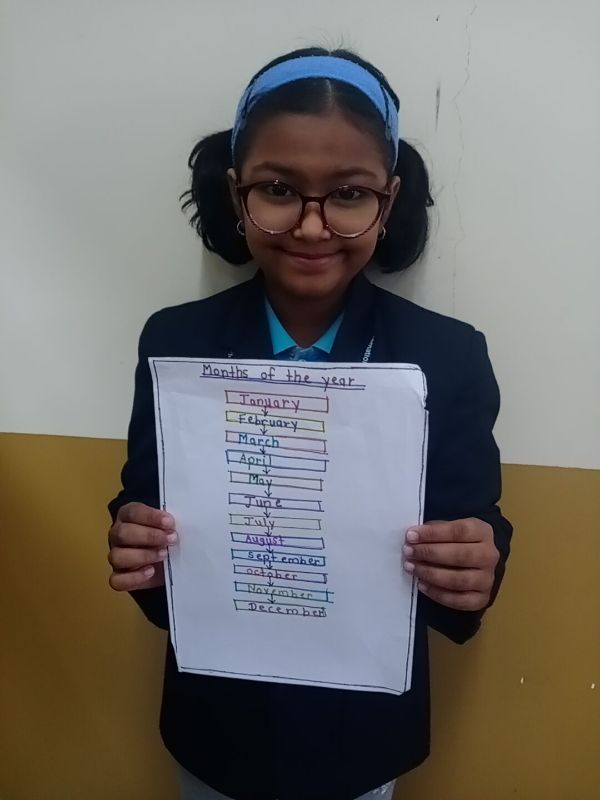 Months of the year
January
February
March
April
May
June
July
August
september
october
November
December